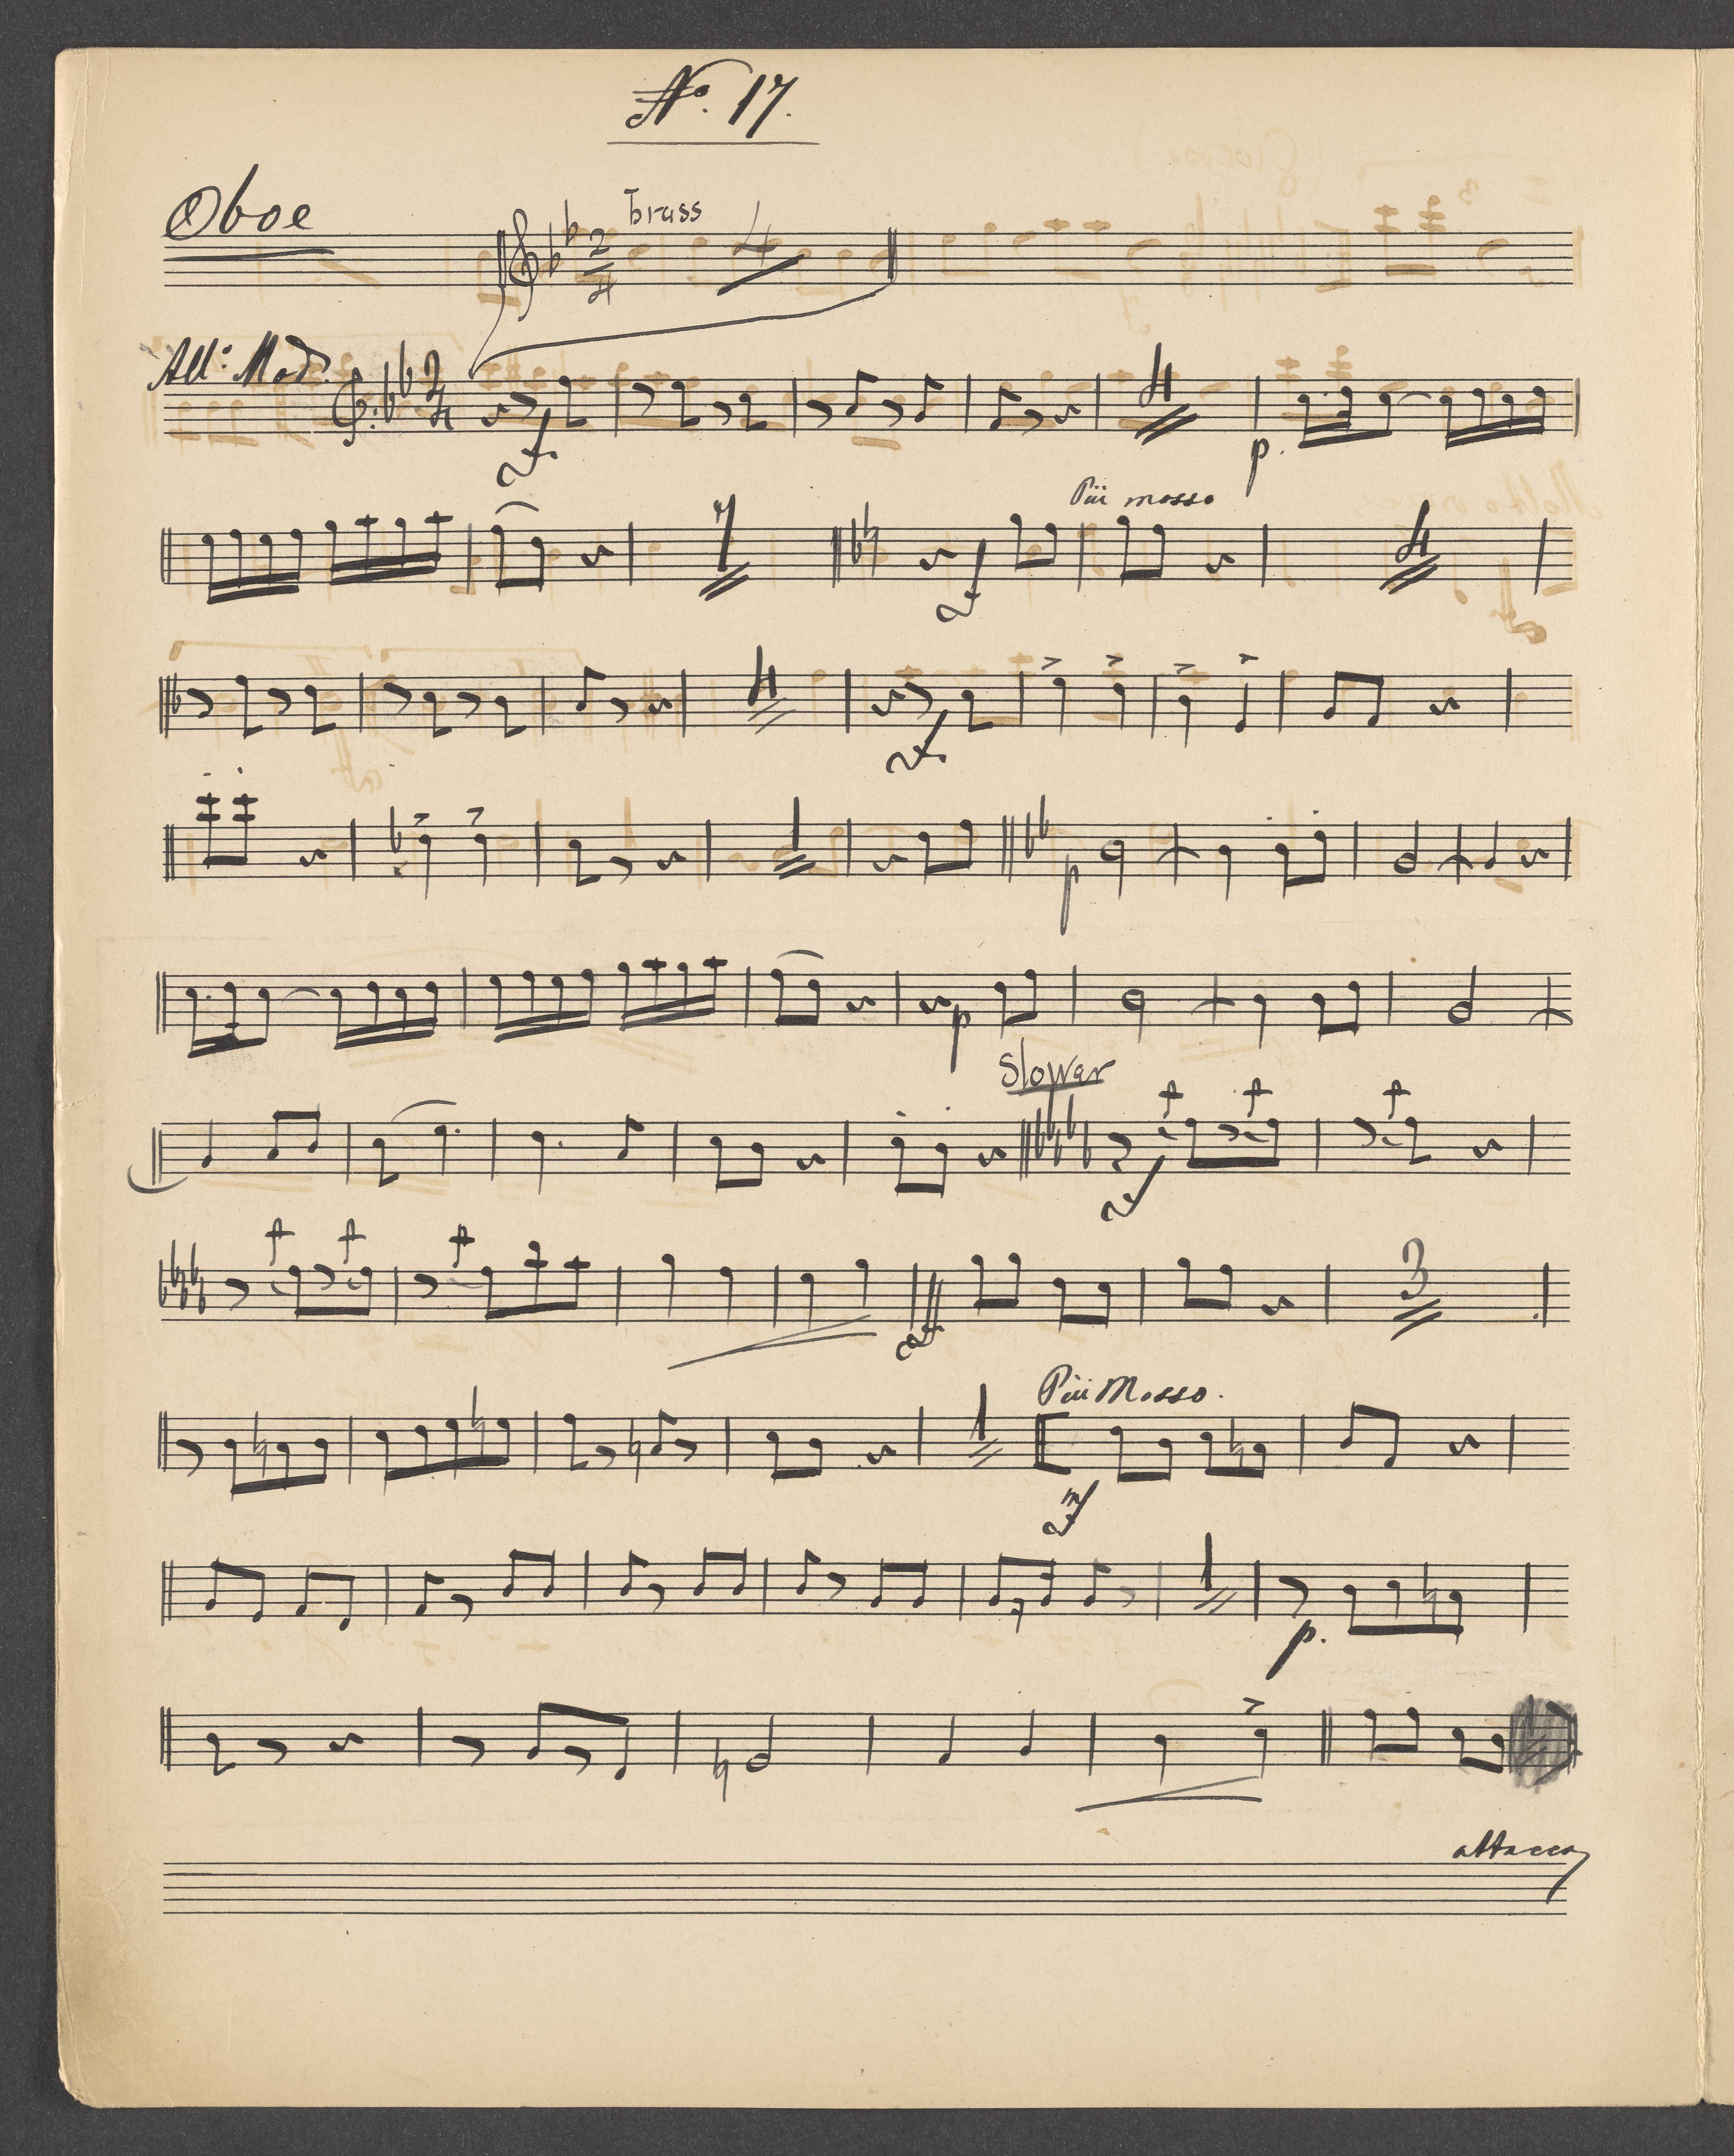 No. 17.
Oboe
brass
2
4
4
All: Mod.
2
4
f.
4
p.
Più mosso
7
f
4
4
f.
1
p
p
Slower
f
ff
3
Più Mosso.
1
mf
1
p.
attacca